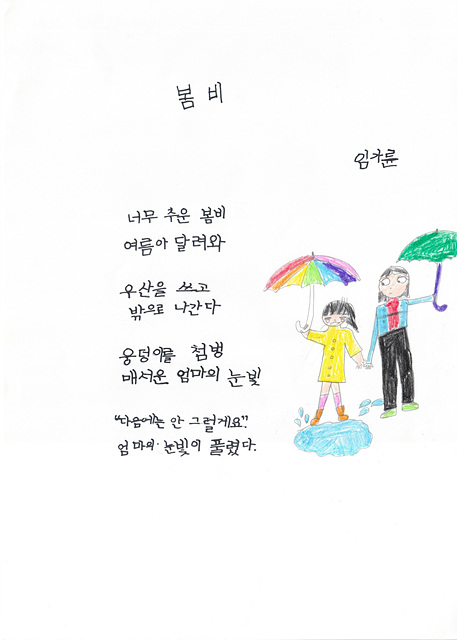 봄 비
임가륜
너무 추운 봄비
여름아 달려와
우산을 쓰고
밖으로 나간다
웅덩이를 첨벙
매서운 엄마의 눈빛
"다음에는 안 그럴게요".
엄마의 눈빛이 풀렸다.